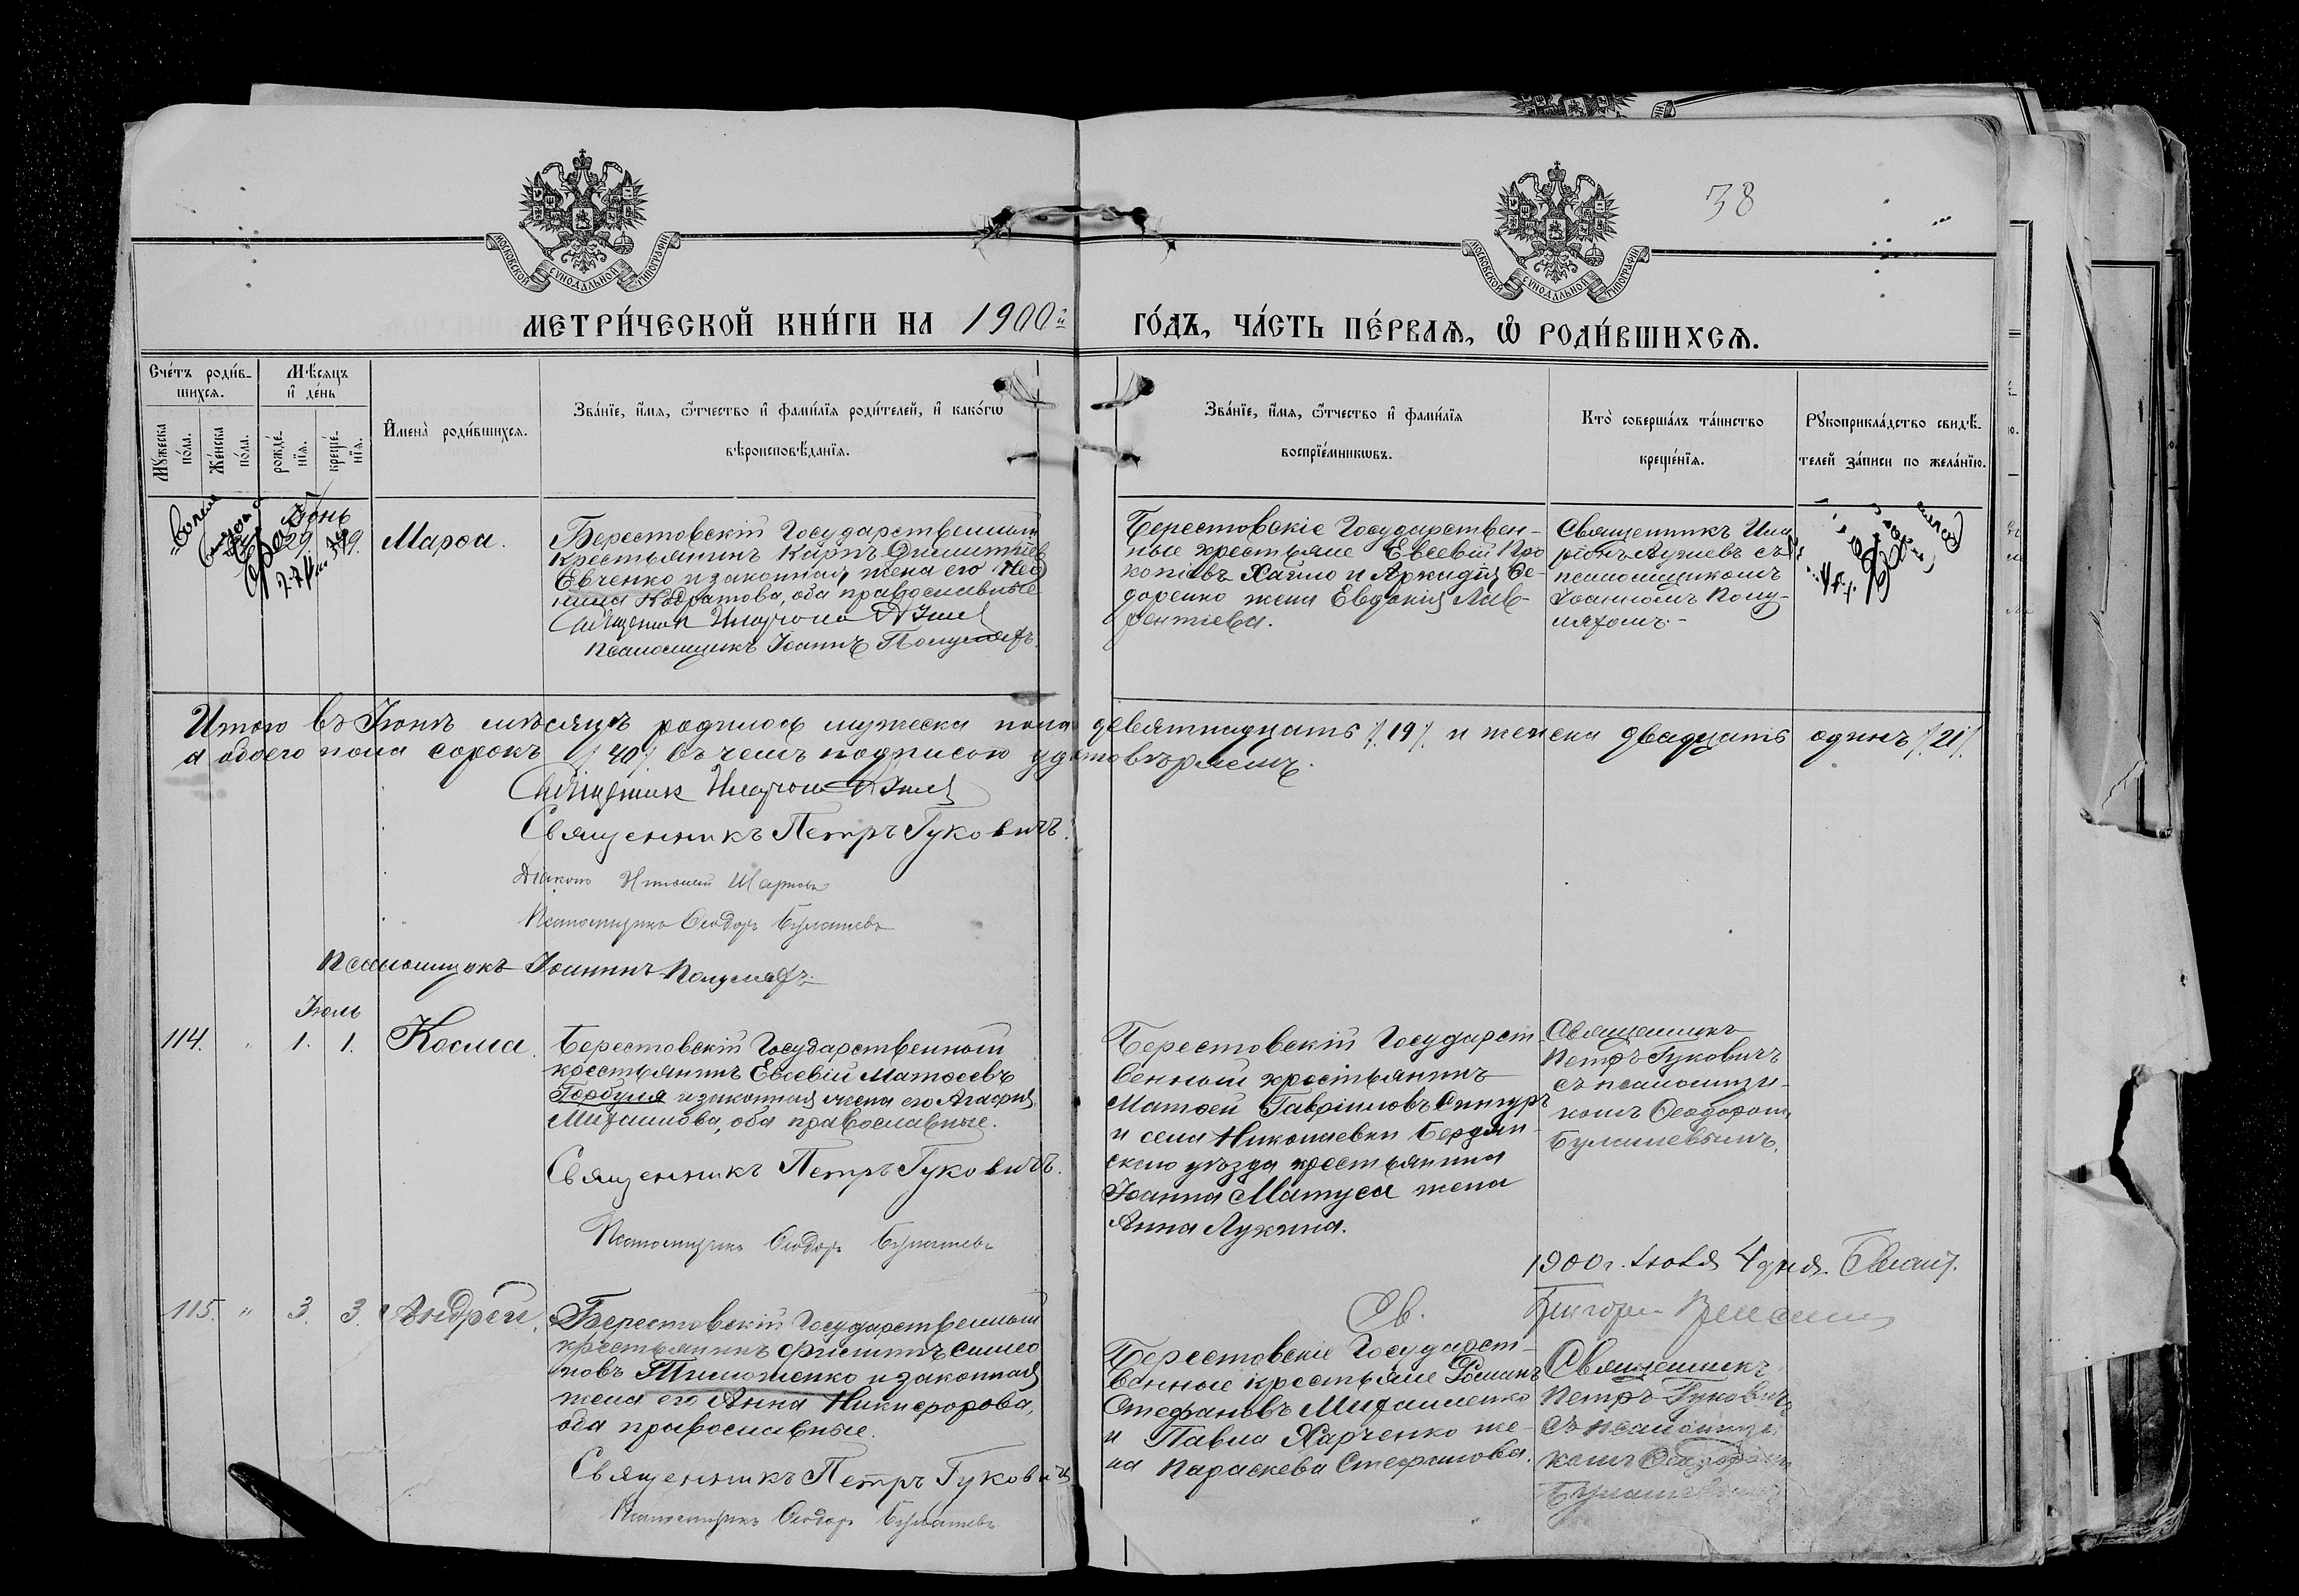 38
МОСКОВСКОЙ СѴНОДАЛЬНОЙ ТИПОГРАФІИ
МОСКОВСКОЙ СѴНОДАЛЬНОЙ ТИПОГРАФІИ
МЕТРИ́ЧЕСКОЙ КНИ́ГИ НА 1900й
ГО́ДЪ, ЧА́СТЬ ПЕ́РВАѦ, Ѡ РОДИ́ВШИХСѦ.
Сче́тъ роди́в-
шихсѧ.
Мѣ́сяцъ
и҆ де́нь
Му́жеска
по́ла.
Же́нска
по́ла.
рожде́-
нїѧ.
креще́-
нїѧ.
И҆мена̀ роди́вшихсѧ.
Зва́нїе, и҆́мѧ, ѻ҆́тчество и҆ фами́лїѧ роди́телей, и҆ како́гѡ
вѣроисповѣ́данїѧ.
Зва́нїе, и҆́мѧ, ѻ҆́тчество и҆ фами́лїѧ
воспрїе́мникѡвъ.
Кто̀ соверша́лъ та́инство
креще́нїѧ.
Рꙋкоприкла́дство свидѣ́-
телей за́писи по жела́нїю.
Іюнь
29.
Марѳа.
Берестовскій Государственный
крестьянинъ Карпъ Димитріев
Евченко и законная жена его
Кодратова, оба православные
Священникъ Иларіонъ
Псаломщикъ Іоаннъ Полулях.
Берестовскіе Государствен-
ные крестьяне Евсевій Про
копіевъ Хайло и Аркадія Ѳе-
доренко жена Евдокія Лав-
рентіева.
Священникъ Ила
ріонъ съ
псаломщикомъ
Іоанномъ Полу-
ляхомъ.-
Итого въ Іюнѣ мѣсяцѣ родилось мужеска пола девятнадцать /19/ и женска двадцать одинъ /21/
а обоего пола сорокъ /40/ въ чемъ подписью удостовѣряемъ.
Священникъ Иларіонъ
Священникъ Петръ Гуковичъ.
Діаконъ
Псаломщикъ Ѳеодоръ Булашевъ
Псаломщикъ Іоаннъ Полулях.
Іюль
114. 1. 1. Косма.
Берестовскій Государственный
крестьянинъ Евсевій Матѳеевъ
Горбуля и законная жена его Агафія
Михаилова, оба православные.
Священникъ Петръ Гуковичъ.
Псаломщикъ Ѳеодоръ Булашевъ
Берестовскій Государст
венный крестьянинъ
Матѳей Гавріиловъ
и села Николаевки Бердян-
скаго уѣзда крестьянина
Іоанна Матуса жена
Анна Лукина.
Священникъ
Петръ Гуковичъ
съ псаломщи-
комъ Ѳеодоромъ
Булашевымъ.
1900 г. Іюля 4 дня.
115. " 3. 3. Андрей.
Берестовскій Государственный
крестьянинъ Филиппъ Симео
новъ Тимошенко и законная
жена его Анна Никифорова,
оба православные.
Священникъ Петръ Гуковичъ
Псаломщикъ Ѳеодоръ Булашевъ
Св.
Берестовскіе Государст-
венные крестьяне Романъ
Стефановъ Михайленко
и Павла Харченко же-
на Параскева Стефанова.
Священникъ
Петръ Гуковичъ
съ псаломщи-
комъ Ѳеодоромъ
Булашевымъ